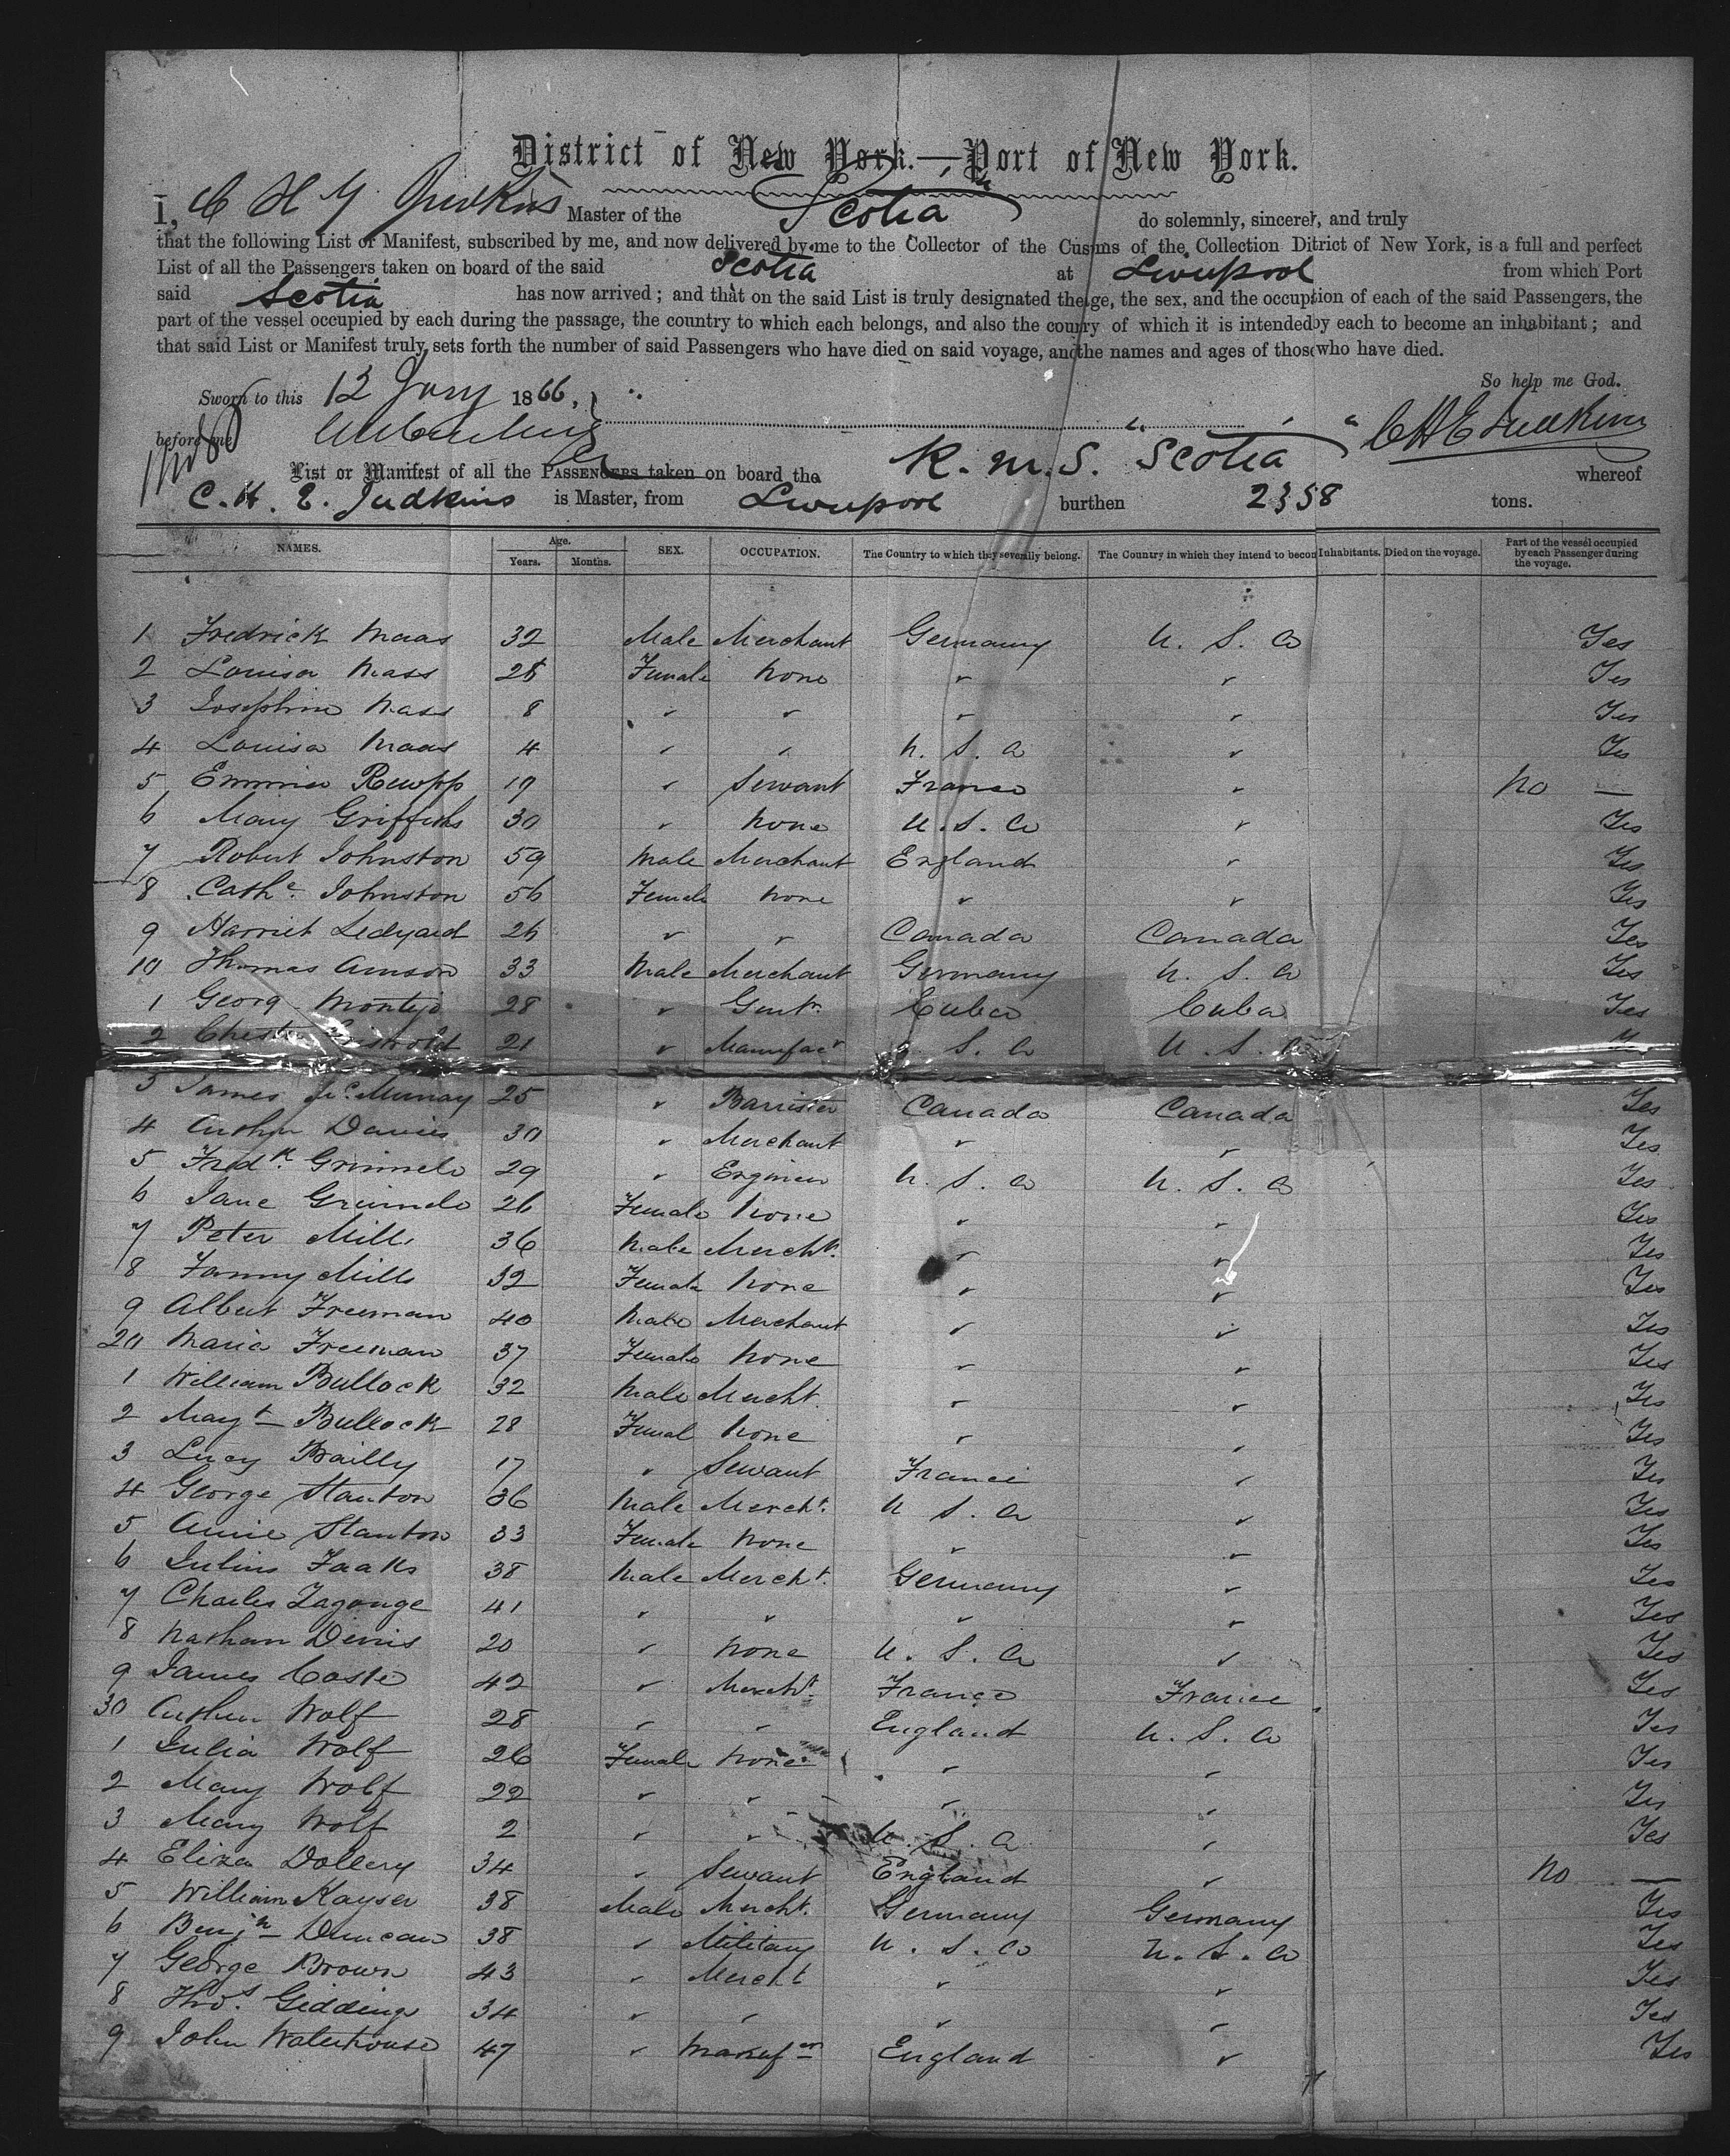 District of New York.—Port of New York.
I, C H E Judkins Master of the Scotia do solemnly, sincerel, and truly
that the following List or Manifest, subscribed by me, and now delivered by me to the Collector of the Cusms of the Collection Ditrict of New York, is a full and perfect
List of all the Passengers taken on board of the said Scotia at Liverpool from which Port
said Scotia has now arrived; and that on the said List is truly designated the ge, the sex, and the occuption of each of the said Passengers, the
part of the vessel occupied by each during the passage, the country to which each belongs, and also the counry of which it is intended by each to become an inhabitant; and
that said List or Manifest truly sets forth the number of said Passengers who have died on said voyage, and the names and ages of those who have died.
So help me God.
Sworn to this 12 Jany 1866,
before me C H E Judkins
List or Manifest of all the PASSENGERS taken on board the R. M. S. Scotia whereof
C. H. E. Judkins is Master, from Liverpool burthen 2358 tons.
NAMES. Age. Years. Months. SEX. OCCUPATION. The Country to which they severally belong. The Country in which they intend to becom Inhabitants. Died on the voyage. Part of the vessel occupied by each Passenger during the voyage.
1 Fredrick Maas 32 Male Merchant Germany U. S. A Yes
2 Louisa Maas 28 Female None " " Yes
3 Josephine Maas 8 " " " " Yes
4 Louisa Maas 4 " " U. S. A " Yes
5 Emmia 19 " Servant France " No —
6 Mary Griffiths 30 " None U. S. A " Yes
7 Robert Johnston 59 Male Merchant England " Yes
8 Cathe. Johnston 56 Female None " " Yes
9 Harriet Ledyard 26 " " Canada Canada Yes
10 Thomas Amson 33 Male Merchant Germany U. S. A Yes
1 Georg Montejo 28 " Gentn. Cuba Cuba Yes
2 21 " Manufacr S. A U. S. A
3 James Mc. Murray 25 " Barrister Canada Canada Yes
4 Arthur Davies 30 " Merchant " " Yes
5 Fredk. Grinnele 29 " Engineer U. S. A U. S. A Yes
6 Jane Grinnele 26 Female None " " Yes
7 Peter Mills 36 Male Mercht. " " Yes
8 Fanny Mills 32 Female None " " Yes
9 Albert Freeman 40 Male Merchant " " Yes
20 Maria Freeman 37 Female None " " Yes
1 William Bullock 32 Male Mercht. " " Yes
2 Mayt Bullock 28 Femal None " " Yes
3 Lucy Bailly 17 " Servant France " Yes
4 George Stanton 36 Male Mercht. U S. A " Yes
5 Annie Stanton 33 Female None " " Yes
6 Julius Faaks 38 Male Mercht. Germany " Yes
7 Charles Lagonge 41 " " " " Yes
8 Nathan Denis 20 " None U. S. A " Yes
9 James Coste 42 " Mercht. France France Yes
30 Arthur Wolf 28 " " England U. S. A Yes
1 Julia Wolf 26 Female None " " Yes
2 Mary Wolf 22 " " " " Yes
3 Mary Wolf 2 " " U. S. A " Yes
4 Eliza Dollery 34 " Servant England " No —
5 William Kayser 38 Male Mercht. Germany Germany Yes
6 Benjn Duncan 38 " Military U. S. A U. S. A Yes
7 George Brown 43 " Mercht " " Yes
8 Thos. Giddings 34 " " " " Yes
9 John Waterhouse 47 " Manufr England " Yes